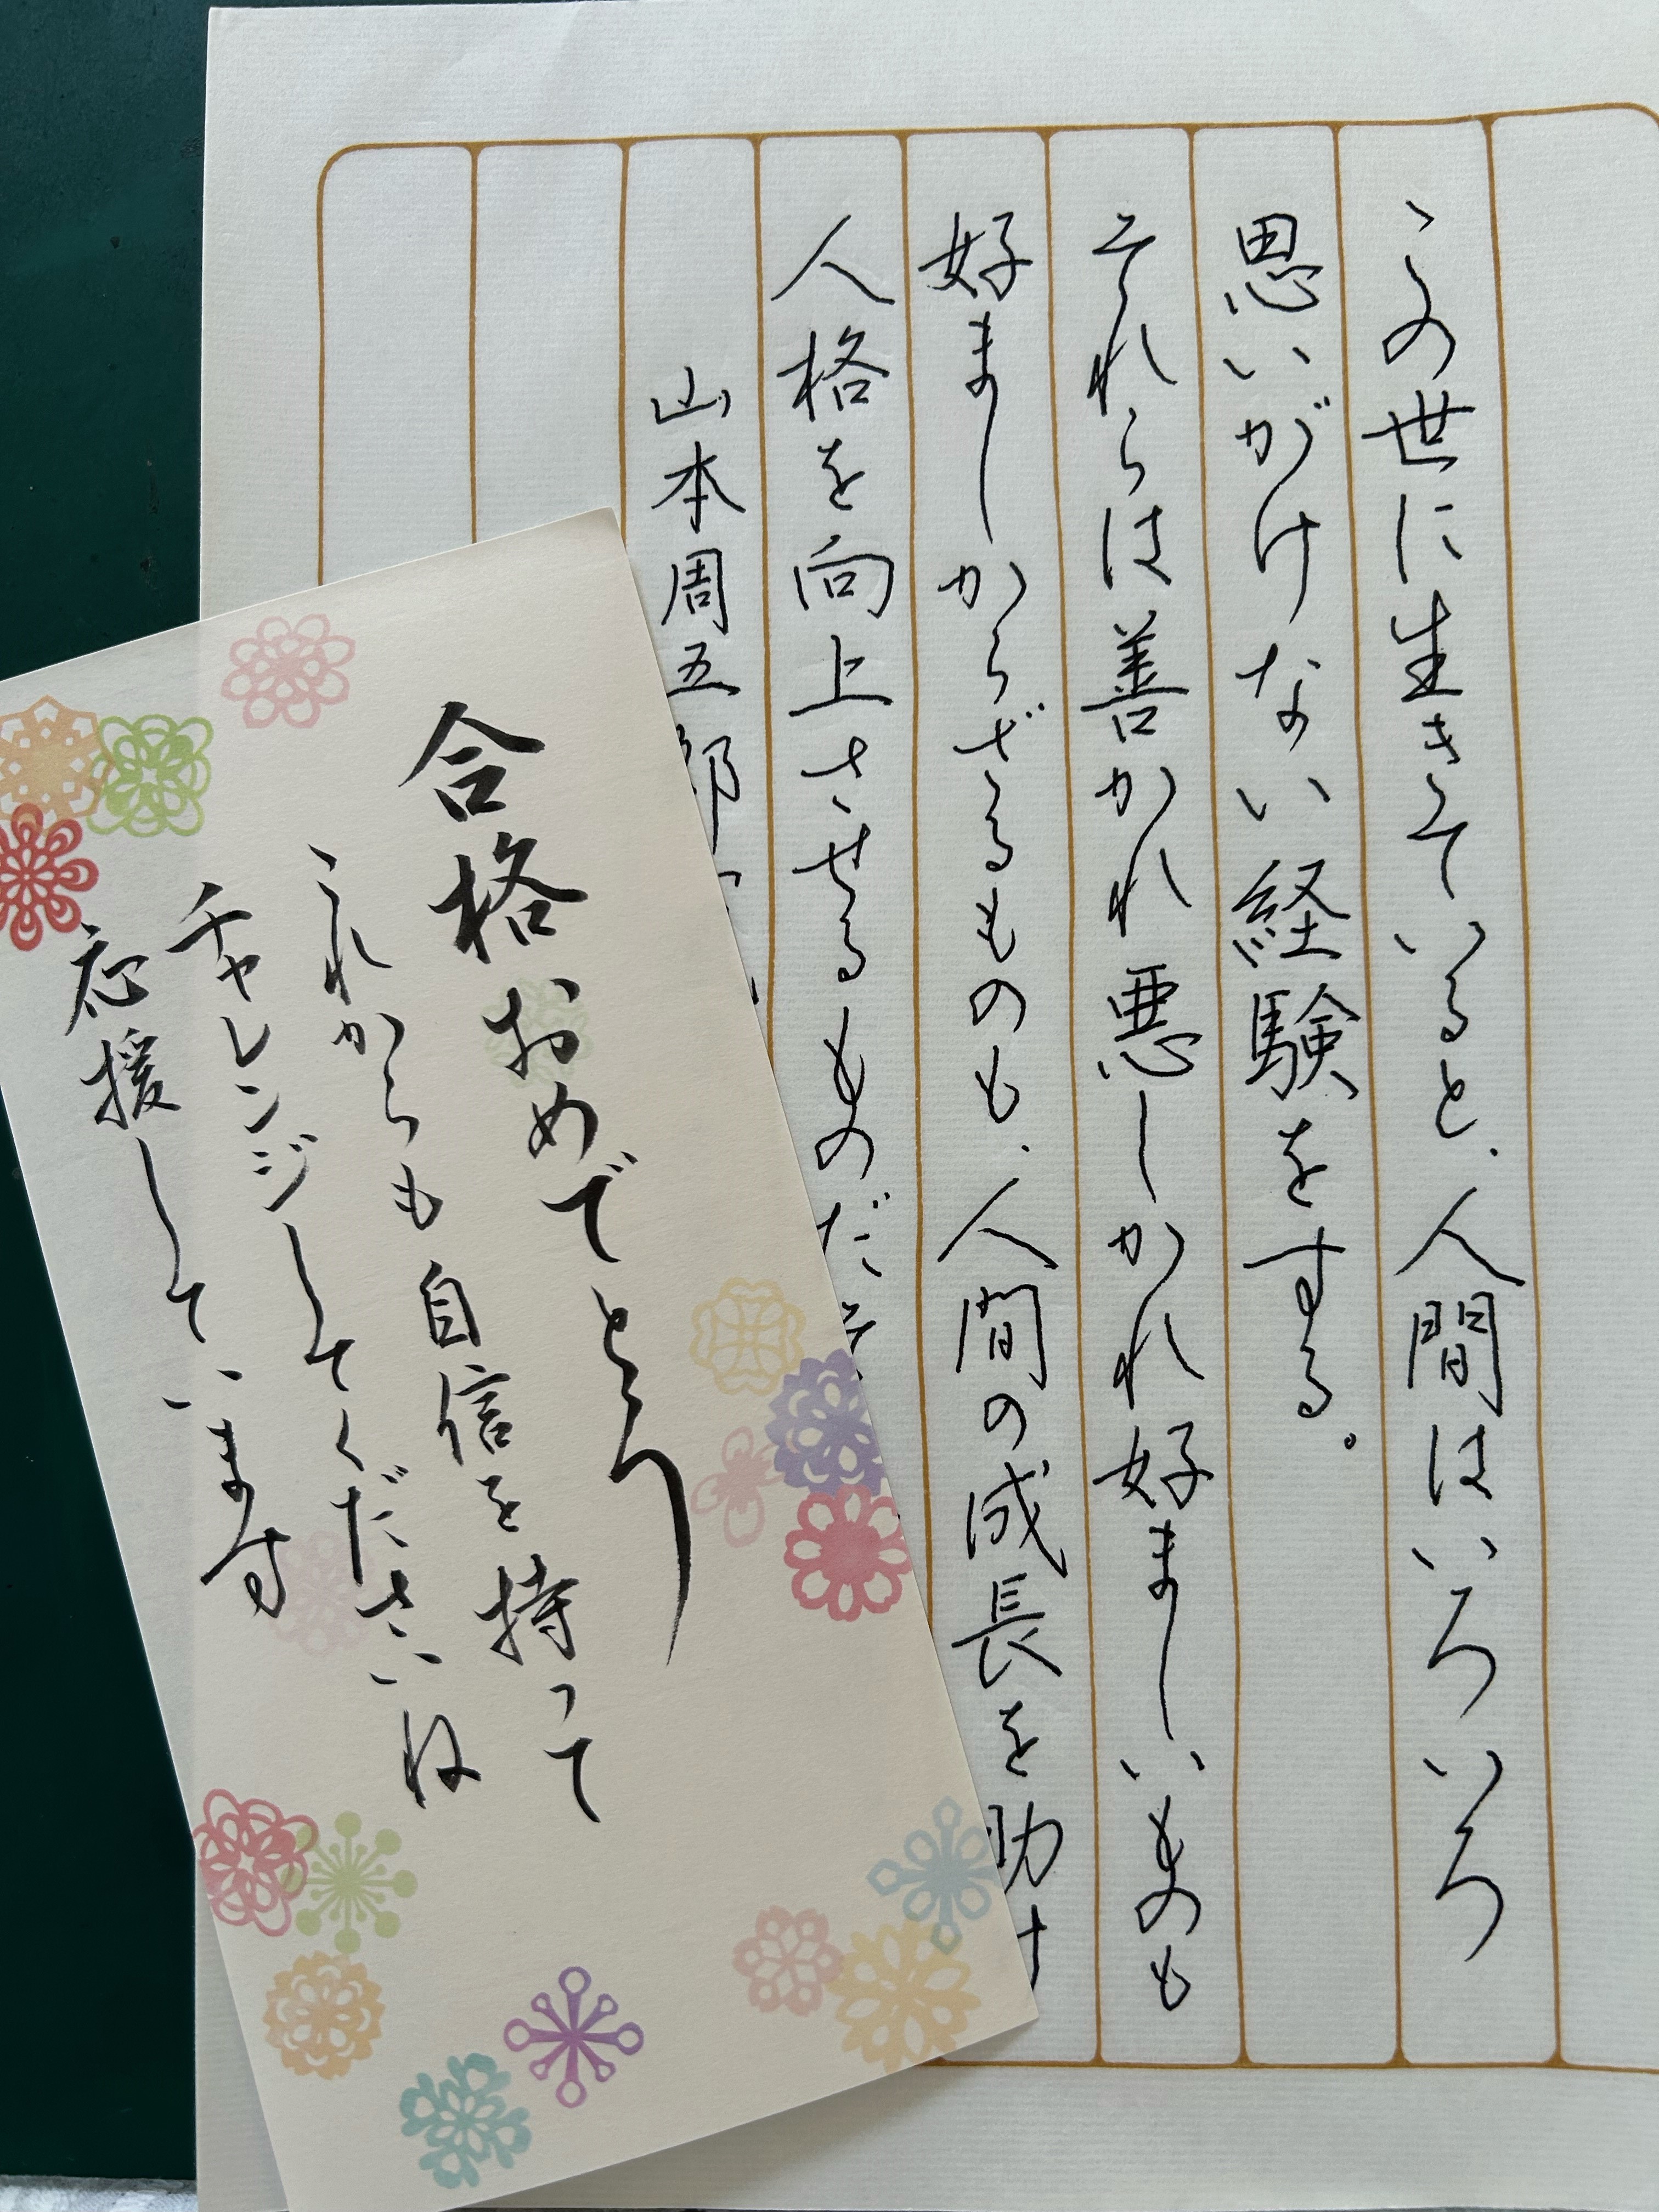 この世に生きていると、人間はいろいろ
思いがけない経験をする。
それらは善かれ悪しかれ好ましいものも
好ましからざるものも、人間の成長を助け
人格を向上させるものだ
山本周五郎
合格おめでとう
これからも自信を持って
チャレンジしてくださいね
応援しています